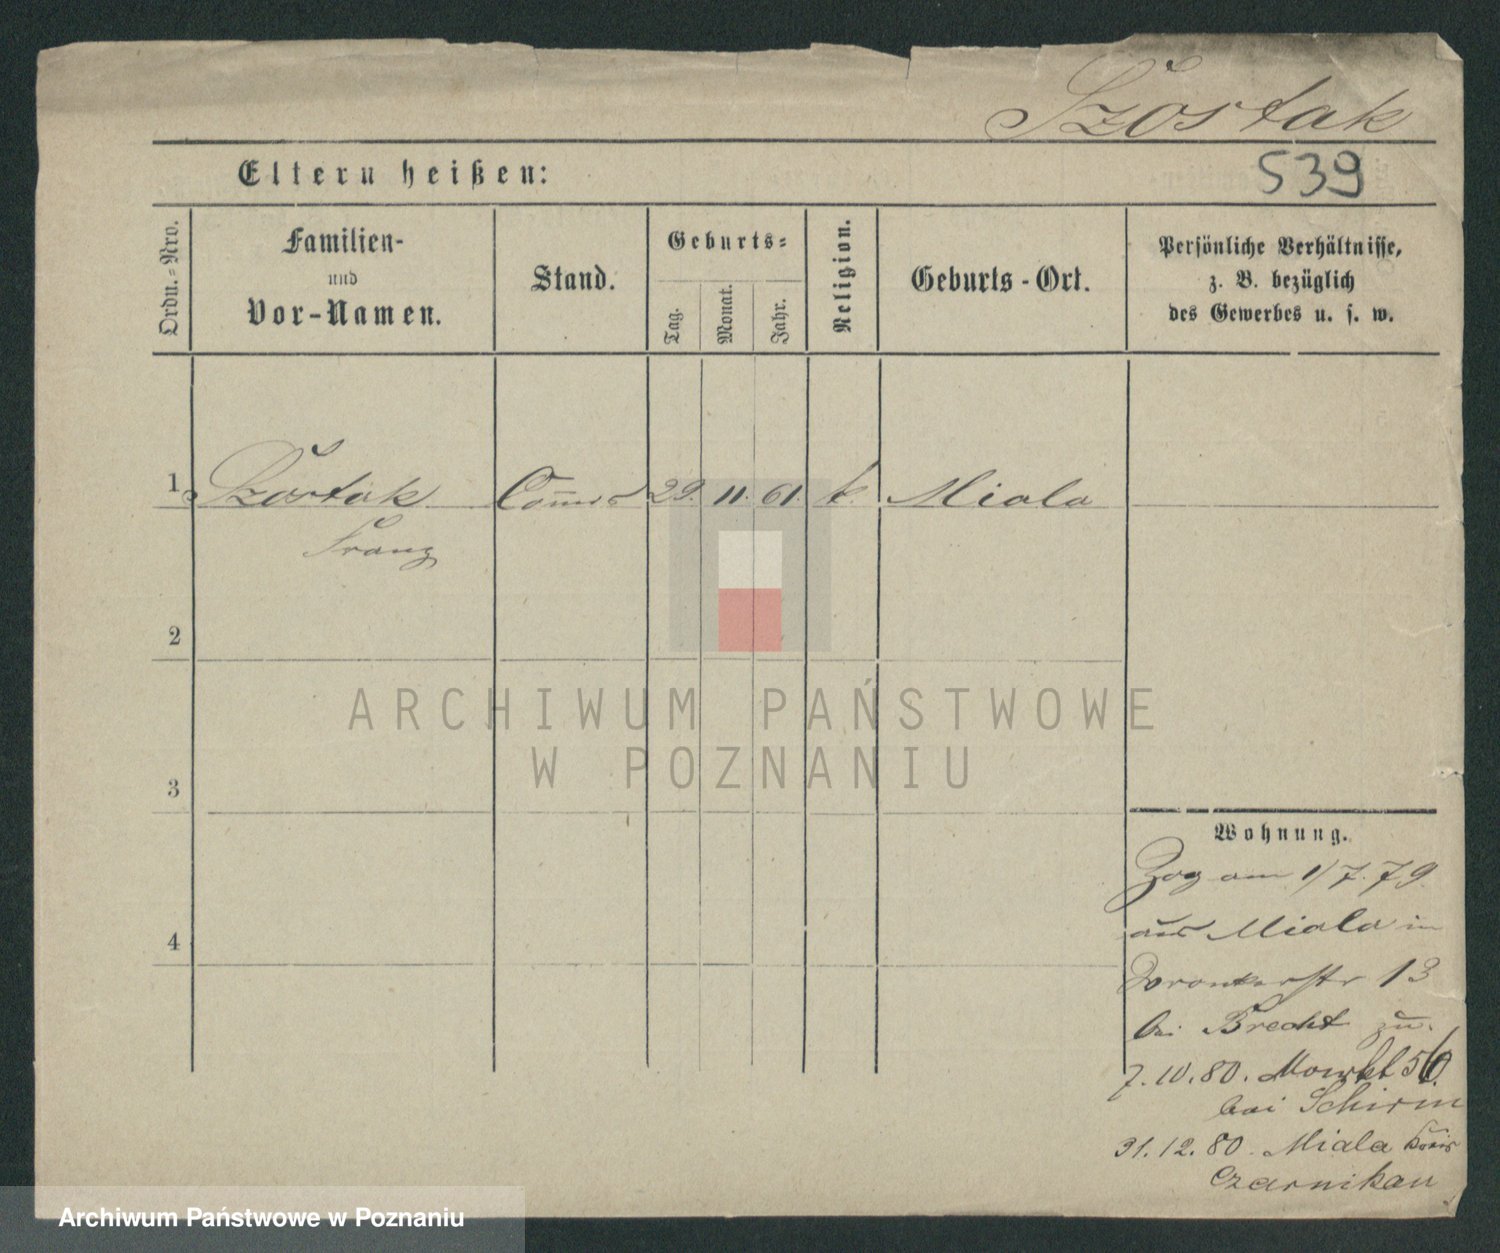 Szostak
Eltern heißen:
539
Ordn.-Nro.
Familien-
und
Vor-Namen.
Stand.
Geburts-
Tag.
Monat.
Jahr.
Religion.
Geburts-Ort.
Persönliche Verhältnisse,
z. B. bezüglich
des Gewerbes u. s. w.
1 Szostak Commis 29. 11. 61. k. Miala
Franz
2
3
4
ARCHIWUM PAŃSTWOWE
W POZNANIU
Wohnung.
Zog am 1/7. 79.
aus Miala in
Wronkerstr 13
bei Brecht zu.
7.10.80. Markt 56.
bei Schirm
31.12.80. Miala Kreis
Czarnikau
Archiwum Państwowe w Poznaniu